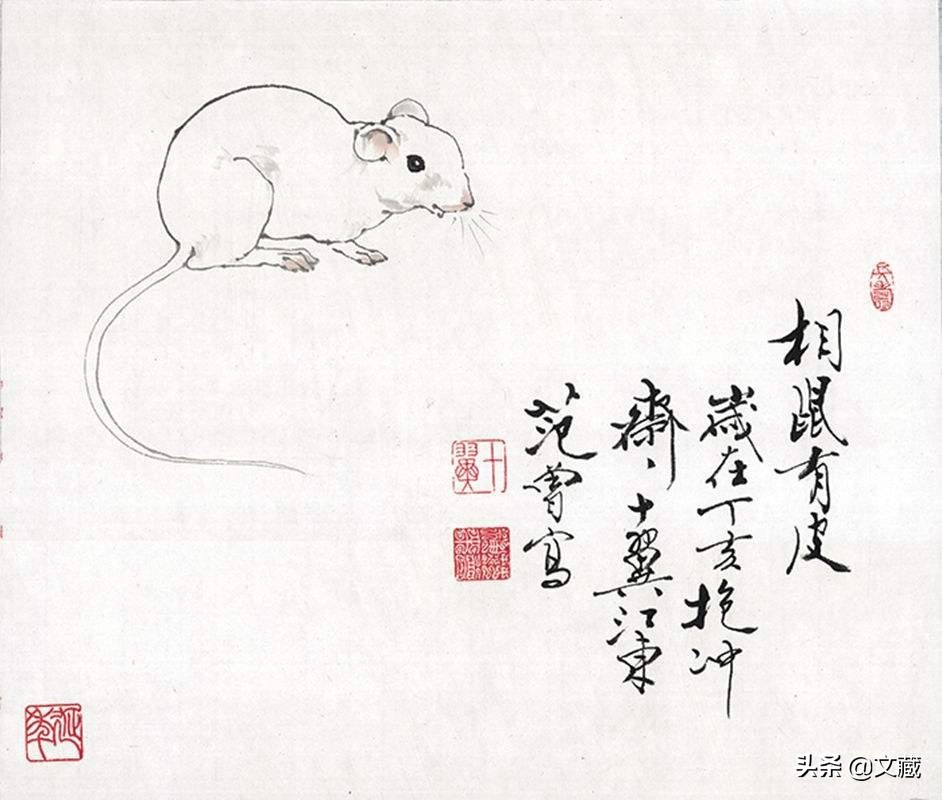 相鼠有皮
歲在丁亥抱冲
齋、十翼江東
范曾寫
十翼
头条 @文藏